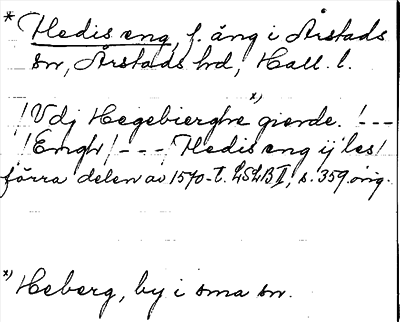 * Hedis eng, f. äng i Årstads
sn, Årstads hd, Hall. l.
/Vdj Hegebierghe x) gierde. /---
/Emghr/---/ Hedis eng ij les/
förra delen av 1570-t. LSLB II, s. 359 orig.
x) Heberg, by i sma sn.